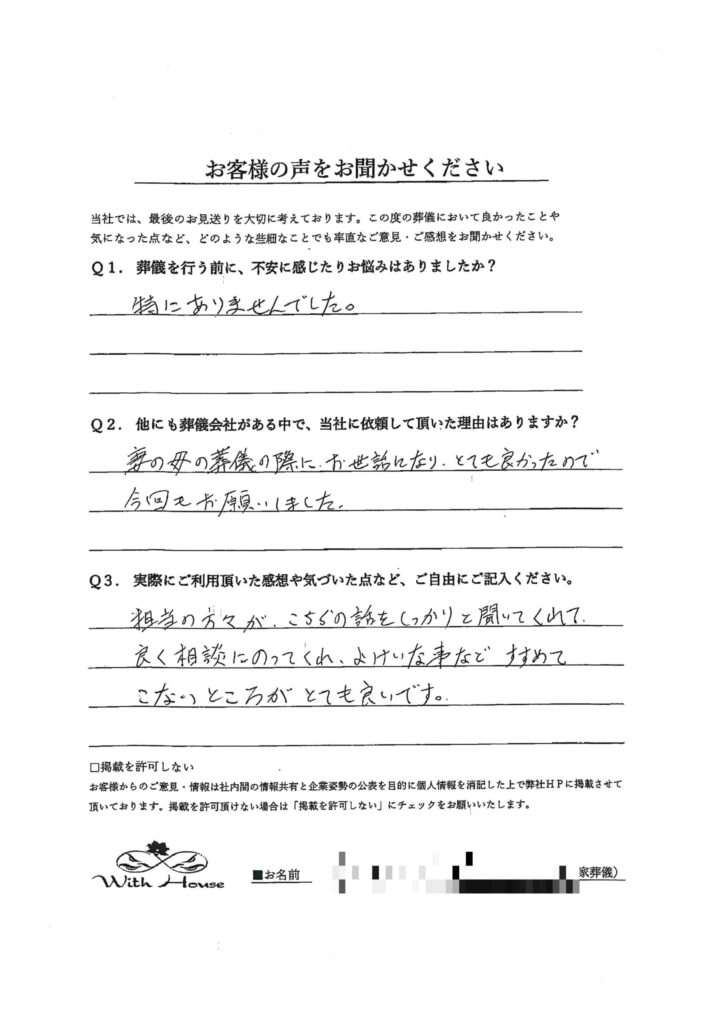 お客様の声をお聞かせください
当社では、最後のお見送りを大切に考えております。この度の葬儀において良かったことや
気になった点など、どのような些細なことでも率直なご意見・ご感想をお聞かせください。
Q1．葬儀を行う前に、不安に感じたりお悩みはありましたか？
特にありませんでした。
Q2．他にも葬儀会社がある中で、当社に依頼して頂いた理由はありますか？
妻の母の葬儀の際に、お世話になり、とても良かったので
今回もお願いしました。
Q3．実際にご利用頂いた感想や気づいた点など、ご自由にご記入ください。
担当の方々が、こちらの話をしっかりと聞いてくれて、
良く相談にのってくれ、よけいな事など すすめて
こないところがとても良いです。
□掲載を許可しない
お客様からのご意見・情報は社内間の情報共有と企業姿勢の公表を目的に個人情報を消記した上で弊社HPに掲載させて
頂いております。掲載を許可頂けない場合は「掲載を許可しない」にチェックをお願いいたします。
With House
■お名前 家葬儀）